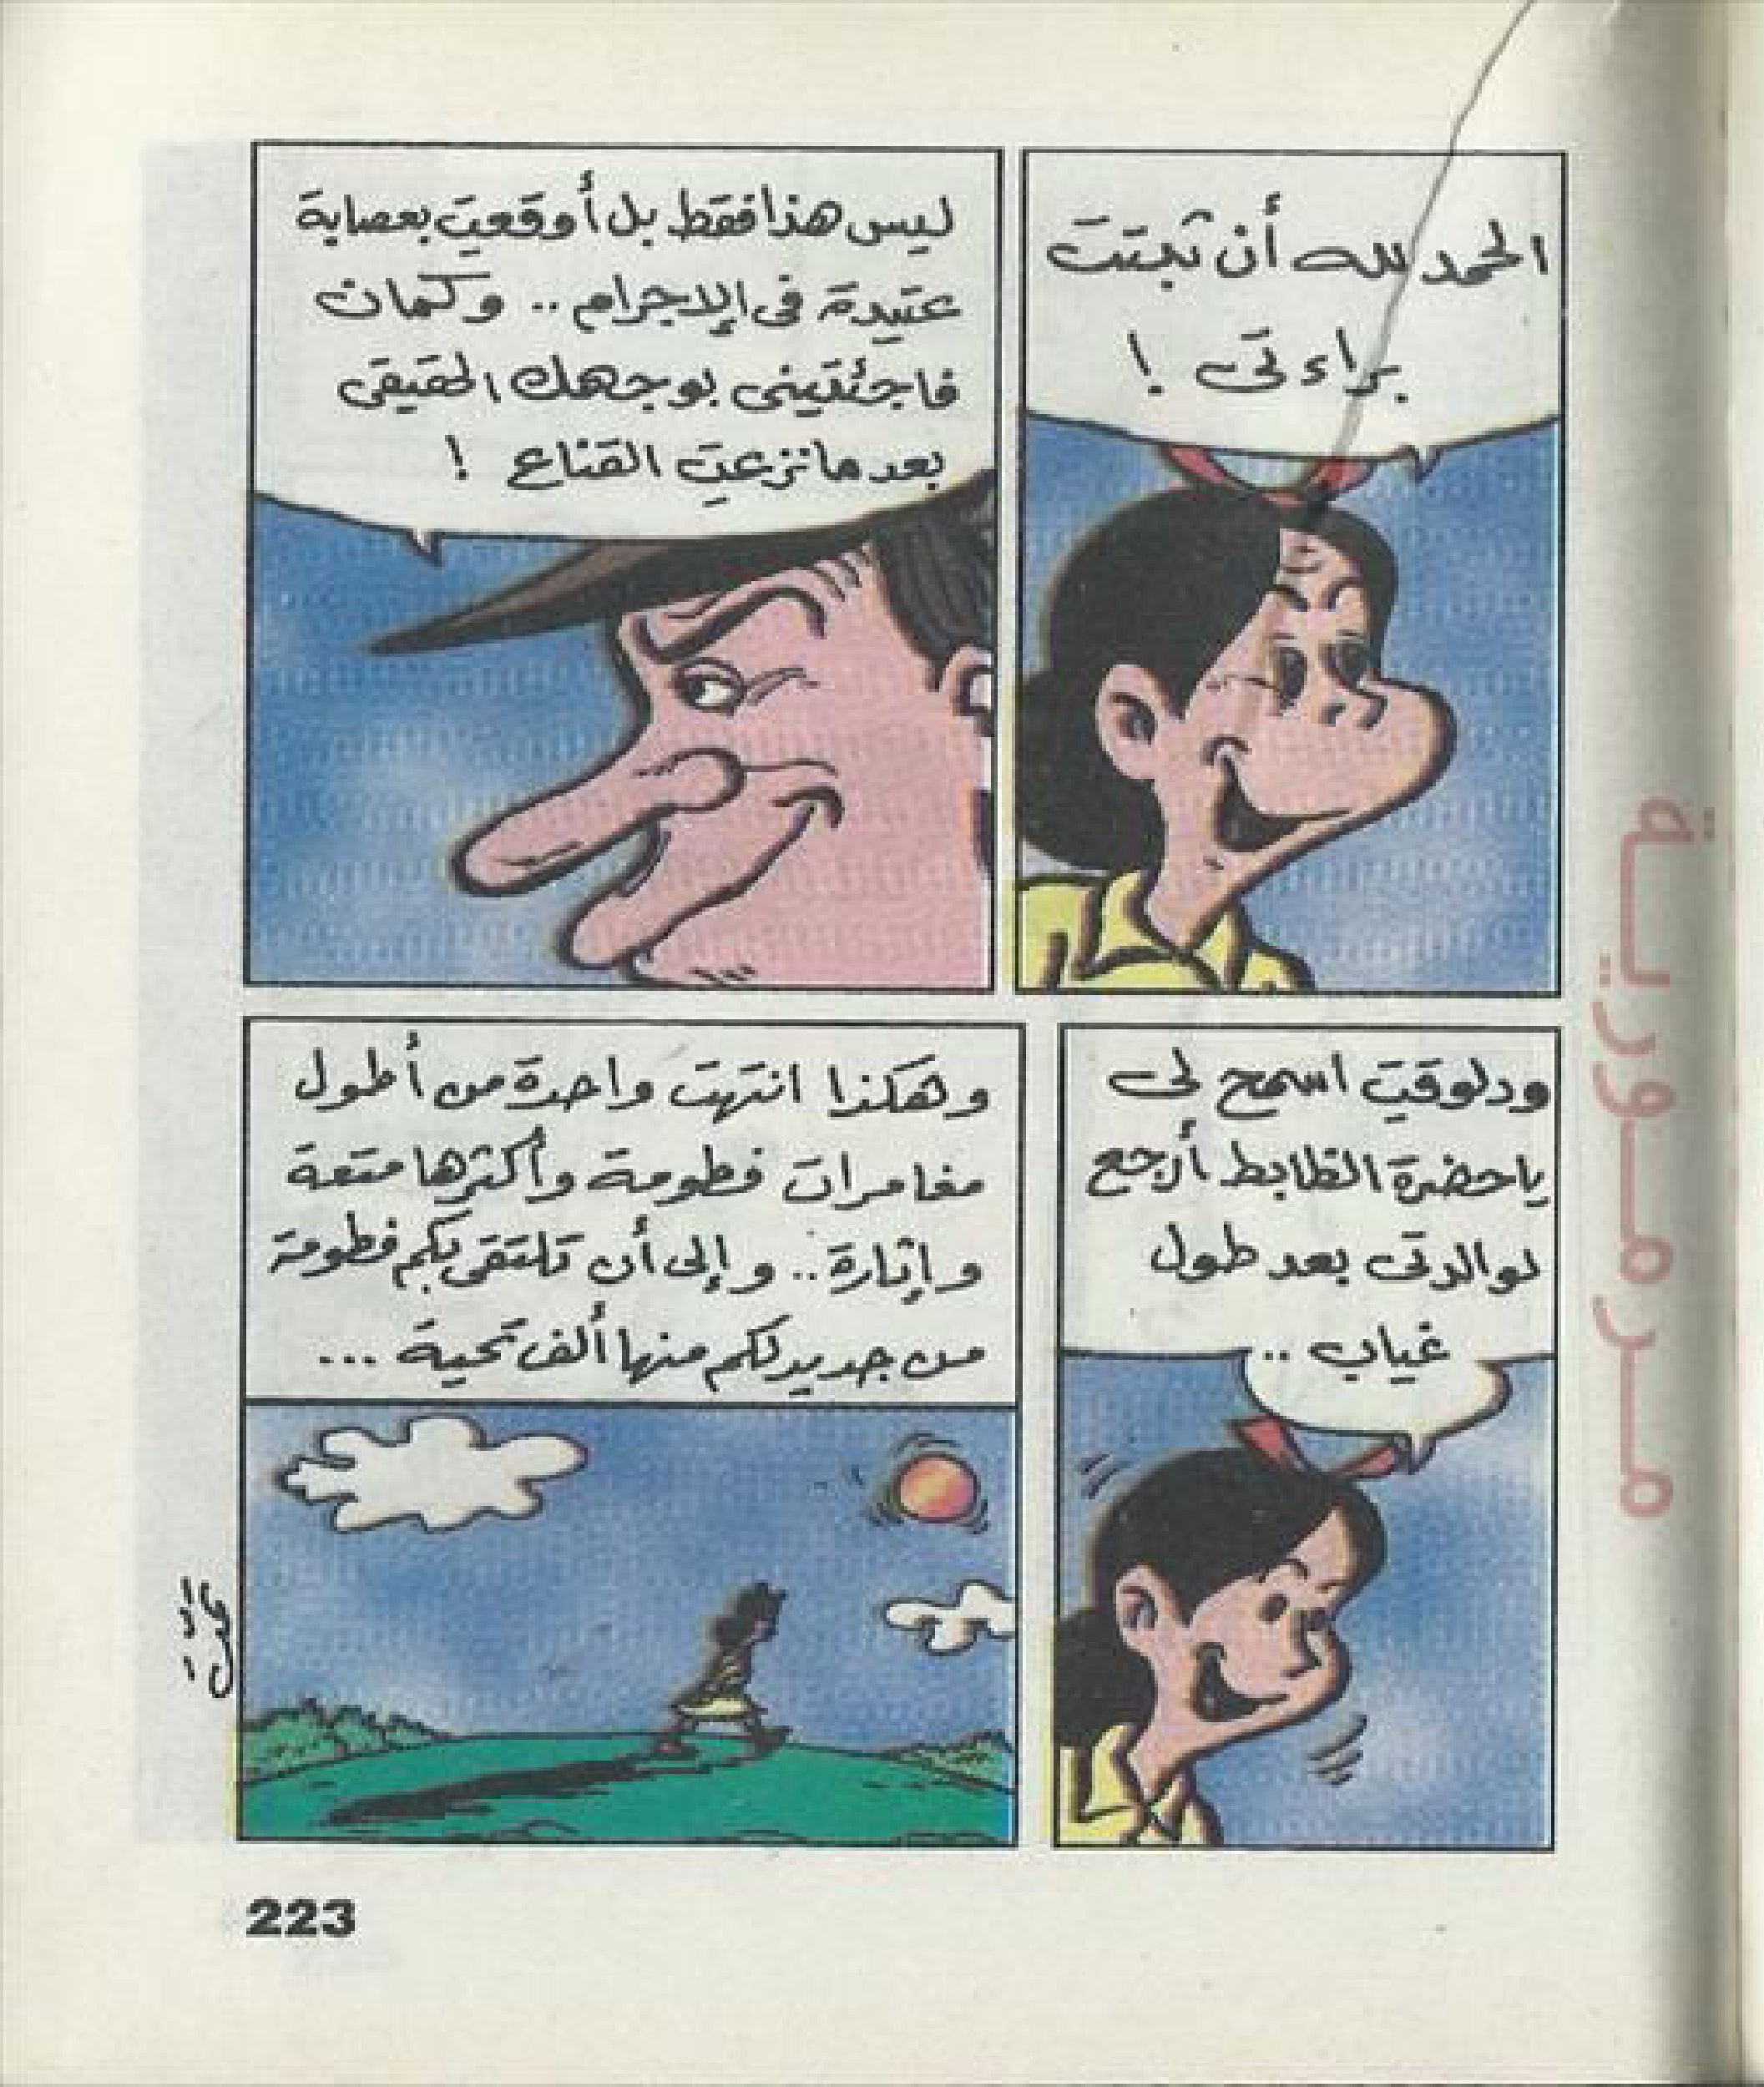 الحمد لله أن ثبتت
براءتى !
ليس هذا فقط بل أوقعتِ بعصابة
عتيدة فى الإجرام .. وكمان
فاجئتينى بوجهك الحقيقى
بعد ما نزعتِ القناع !
ودلوقتِ اسمح لى
ياحضرة الظابط أرجع
لوالدتى بعد طول
غياب ..
وهكذا انتهت واحدة من أطول
مغامرات فطومة وأكثرها متعة
وإثارة .. وإلى أن تلتقى بكم فطومة
من جديد لكم منها ألف تحية ...
223
مرمورية